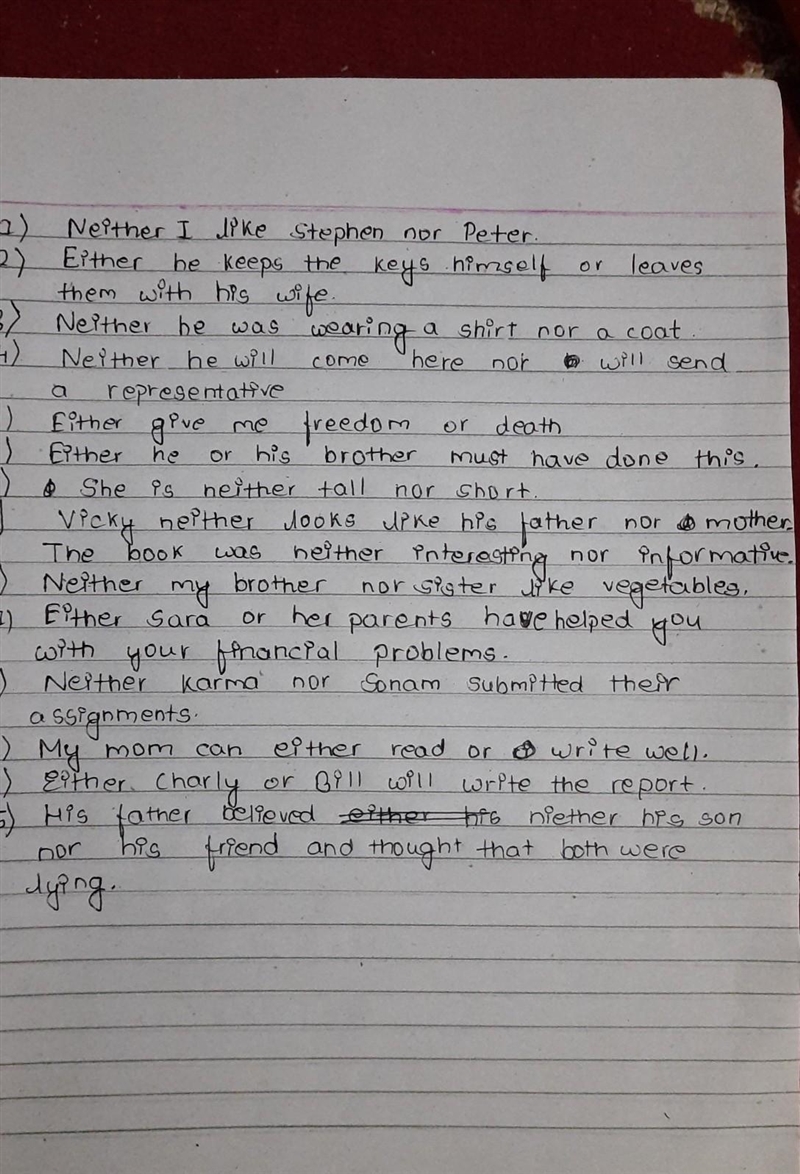 1) Neither I like Stephen nor Peter.
2) Either he keeps the keys himself or leaves
them with his wife.
3) Neither he was wearing a shirt nor a coat.
4) Neither he will come here nor will send
a representative
) Either give me freedom or death
) Either he or his brother must have done this.
) She is neither tall nor short.
Vicky neither looks like his father nor mother.
The book was neither interesting nor informative.
) Neither my brother nor sister like vegetables.
1) Either Sara or her parents have helped you
with your financial problems.
) Neither Karma nor Sonam submitted their
assignments.
) My mom can either read or write well.
) Either Charly or Bill will write the report.
5) His father believed either his niether his son
nor his friend and thought that both were
lying.